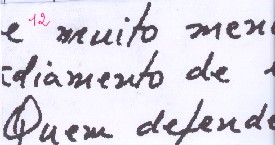 e 12 muito men
adiamento de
Quem defende